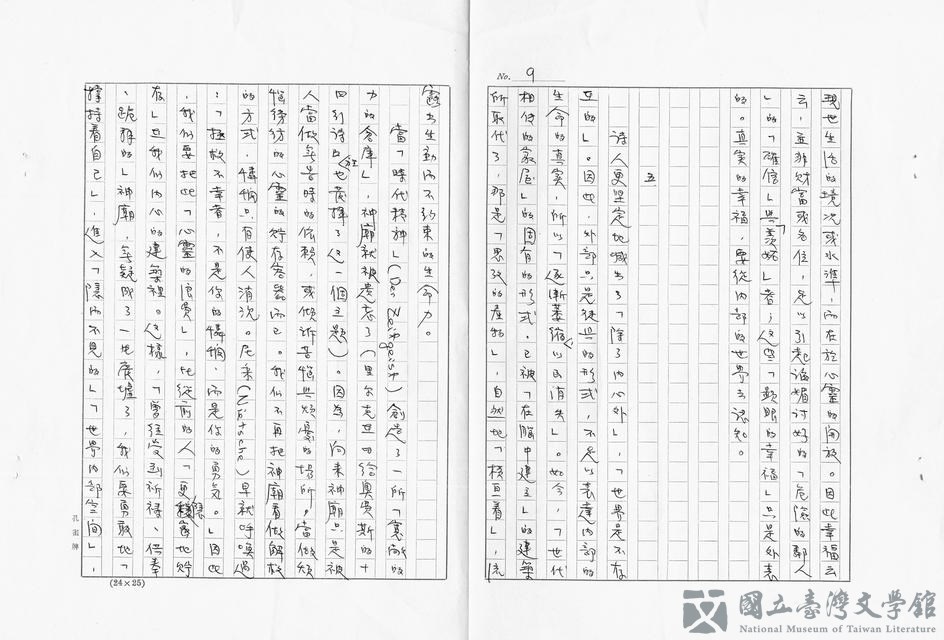 No. 9
現世生活的境況或水準,而在於心靈的開放。因此幸福云
云,並非財富或名位,足以引起諂媚討好的「危險的鄰人
」的「確信」與「羨妬」者;這些「顯眼的幸福」只是外表
的。真實的幸福,要從內部的世界去認知。
五
詩人更坚定地喊出了「除了內心外」,「世界是不存
在的」。因此,外部只是徒具的形式,不足以表達內部的
生命的真实,所以「逐漸萎縮以至消失」。如今,「世代
相傳的家屋」的固有的形式,已被「在腦中建立」的建築
所取代了,那是「思考的產物」,自然地「横亘着」,流
露出生動而不約束的生命力。
當「時代精神」(Der Zeitgeist)創造了一所「寬敞的
力的倉庫」,神廟就被遺忘了(里尔克在《給奧費斯的十
四引詩》已發揮了這一個主題)。因為,向来神廟只是被
人當做辛苦時的依賴,或傾訴苦惱與煩憂的場所,當做煩
惱缚紡的心靈的貯存容器而已。我們不再把神廟看做解放
的方式,憐憫只有使人消沉。尼采(Nietsche)早就呼喚過
:「拯救不幸者,不是你的憐憫,而是你的勇気。」因此
,我們要把此「心靈的浪費」,比從前的人「更隱密地貯
存」在我們內心的建築裡。這樣,「曾經受到祈禱、供奉
、跪拜的」神廟,無疑成了一也廢墟了,我們要勇敢地「
撐持着自己」,進入「隱而不見的」「世界內部空間」,
(24×25)
孔雀牌
國立臺灣文學館
National Museum of Taiwan Literature